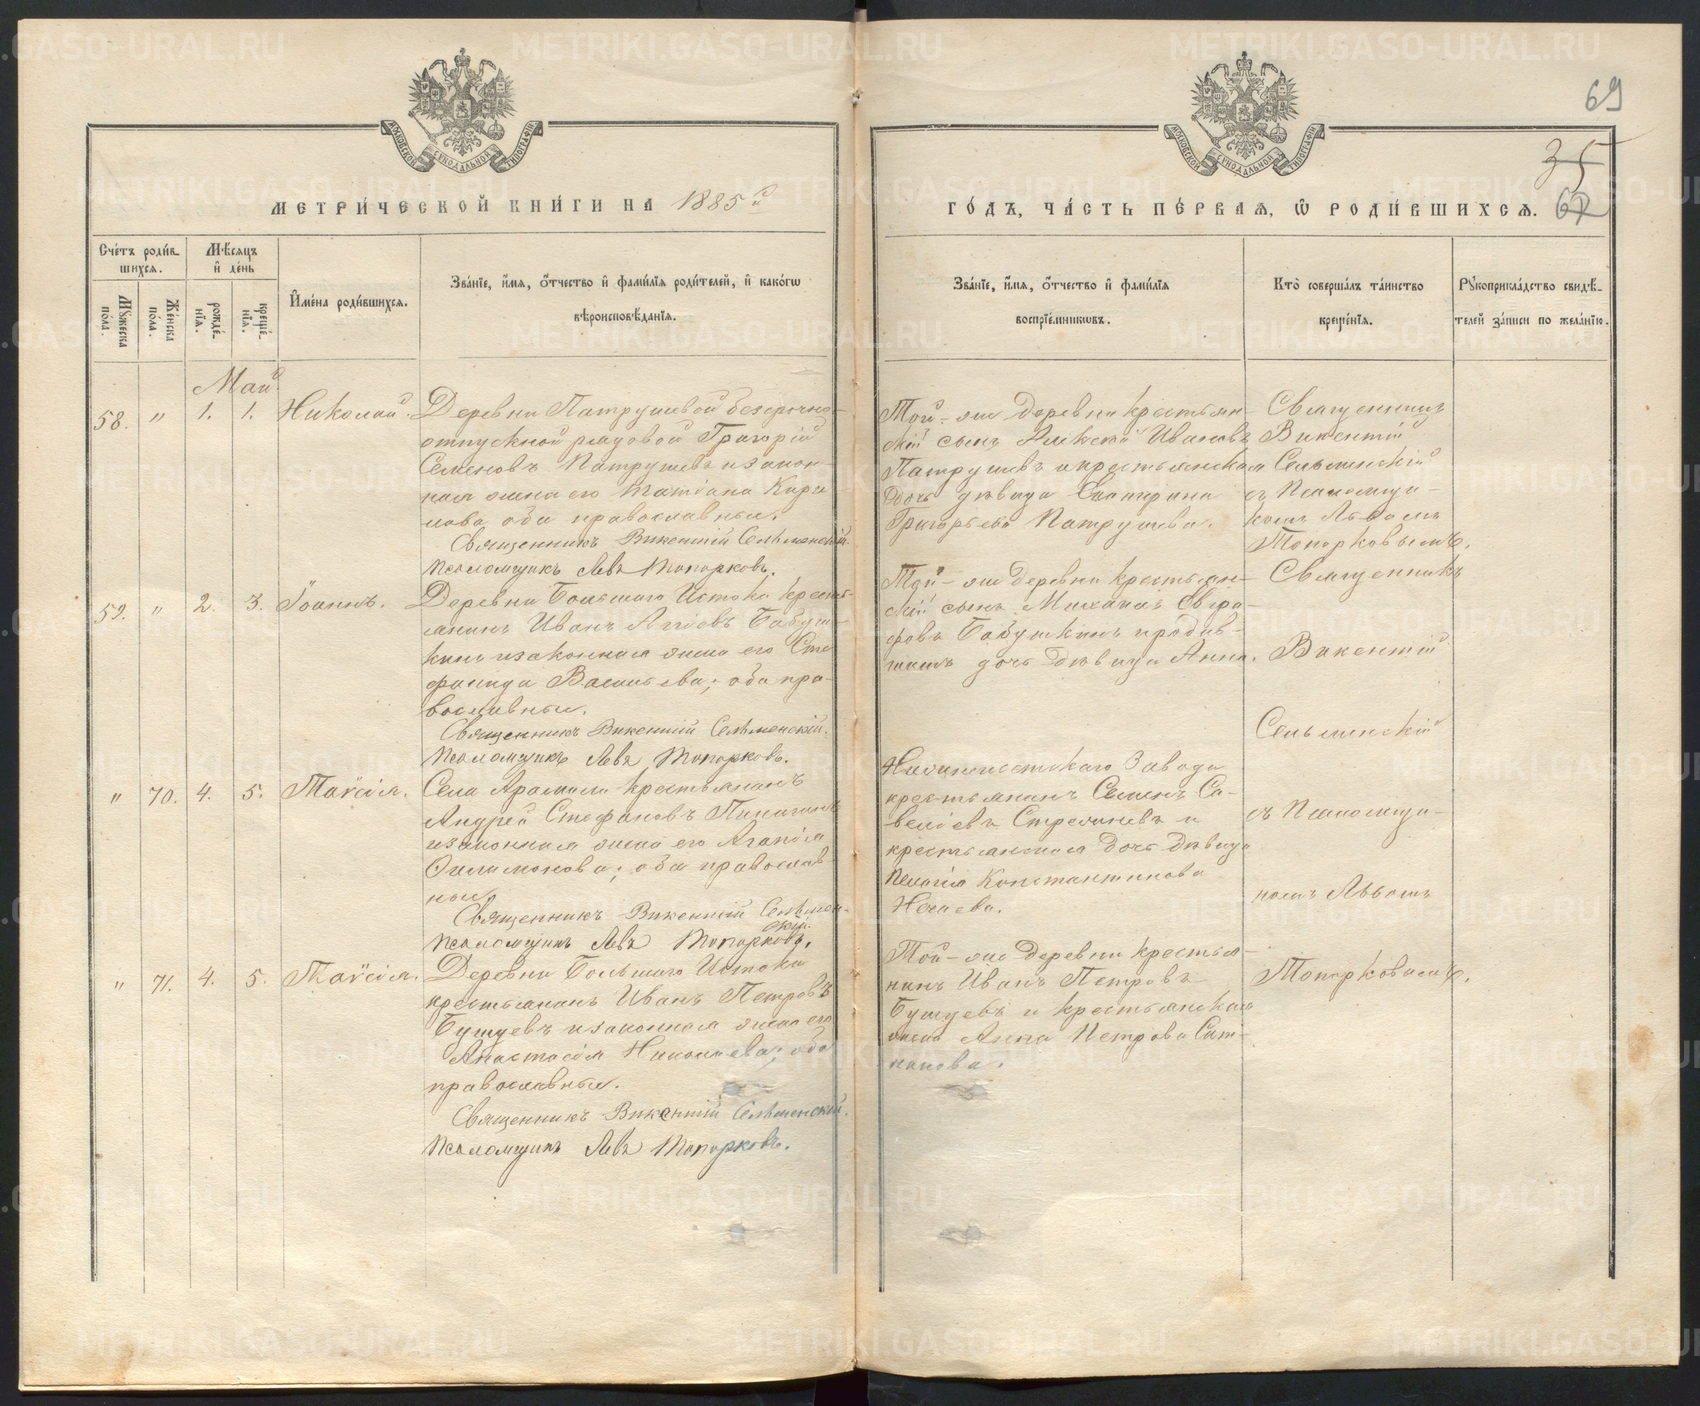 69
35
67
МЕТРИ́ЧЕСКОЙ КНИ́ГИ НА 1885й
ГО́ДЪ, ЧА́СТЬ ПЕ́РВАЯ, Ѡ РОДИ́ВШИХСЯ.
МОСКОВСКОЙ СѴНОДАЛЬНОЙ ТИПОГРАФІИ
МОСКОВСКОЙ СѴНОДАЛЬНОЙ ТИПОГРАФІИ
Сче́тъ роди́в-
шихся.
Мѣ́сяцъ
и҆ де́нь
Мꙋ́жеска
по́ла.
Же́нска
по́ла.
рожде́-
нїѧ.
креще́-
нїѧ.
И҆мена̀ роди́вшихся.
Зва́нїе, и҆́мѧ, ѻ҆́тчество и҆ фами́лїѧ роди́телей, и҆ како́гѡ
вѣроисповѣ́данїѧ.
Зва́нїе, и҆́мѧ, ѻ҆́тчество и҆ фами́лїѧ
воспрїе́мникѡвъ.
Кто̀ соверша́лъ та́инство
креще́нїѧ.
Рꙋкоприкла́дство свидѣ́-
телей за́писи по жела́нїю.
Май
58. " 1. 1. Николай.
Деревни Патрушевой безсрочно-
отпускной рядовой Григорій
Семеновъ Патрушевъ и закон-
ная жена его Татіана Кири-
лова, оба православные.
Священникъ Викентій Сельменскій.
Псаломщикъ Левъ Топорковъ.
Той-же деревни крестьян-
скій сынъ Алексѣй Ивановъ
Патрушевъ и крестьянская
дочь дѣвица Екатерина
Григорьева Патрушева.
Священникъ
Викентій
Сельменскій
съ Псаломщи-
комъ Львомъ
Топорковымъ.
59. " 2. 3. Іоаннъ.
Деревни Большаго Истока кресть-
янинъ Иванъ Бабуш-
кинъ и законная жена его Сте-
фанида Васильева; оба пра-
вославные.
Священникъ Викентій Сельменскій.
Псаломщикъ Левъ Топорковъ.
Той-же деревни крестьян-
скій сынъ Михаилъ
Бабушкинъ и
дочь дѣвица Анна.
Священникъ
Викентій
Сельменскій
съ Псаломщи-
комъ Львомъ
Топорковымъ.
" 70. 4. 5. Таисія.
Села Арамили крестьянинъ
Андрей Стефановъ
и законная жена его Агапія
Филимонова; оба православ-
ные.
Священникъ Викентій Сельмен-
скій.
Псаломщикъ Левъ Топорковъ.
Нижнеистскаго Завода
крестьянинъ Семенъ Са-
веліевъ и
крестьянская дочь дѣвица
Пелагія Константинова
Нечаева.
" 71. 4. 5. Таисія.
Деревни Большаго Истока
крестьянинъ Иванъ Петровъ
Бушуевъ и законная жена его
Анастасія Николаева; оба
православные.
Священникъ Викентій Сельменскій.
Псаломщикъ Левъ Топорковъ.
Той-же деревни крестья-
нинъ Иванъ Петровъ
Бушуевъ и крестьянская
жена Анна Петрова
METRIKI.GASO-URAL.RU